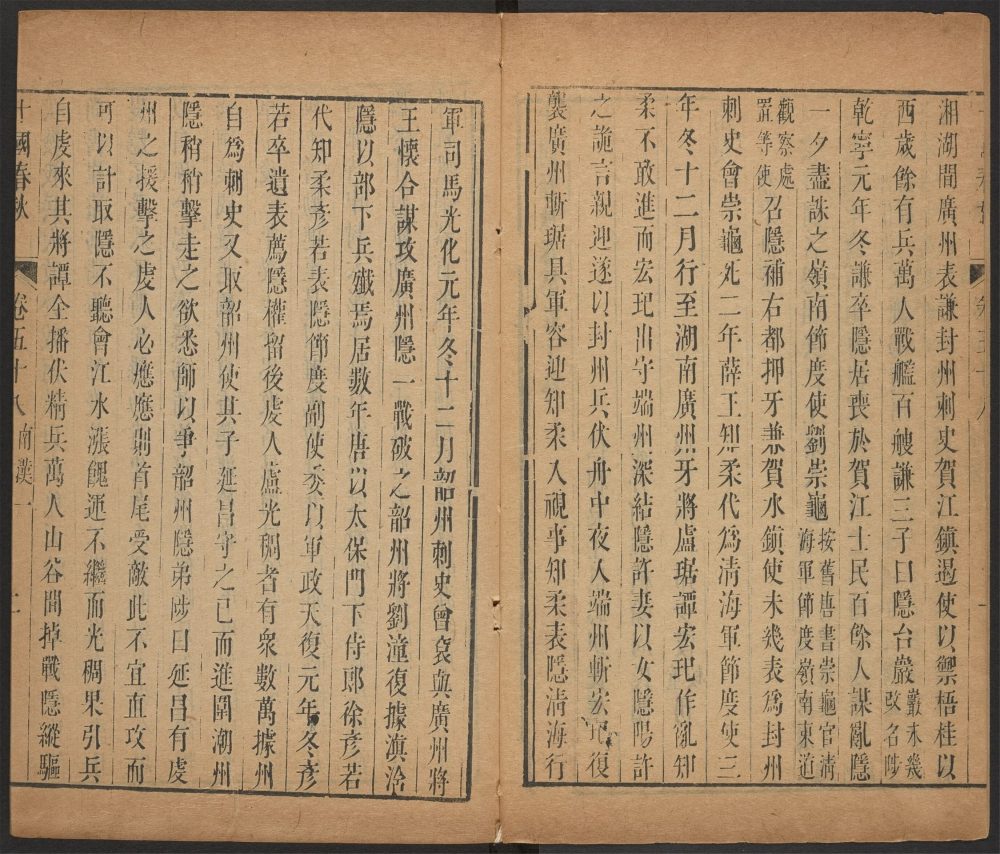 湘湖間廣州表謙封州刺史賀江鎮遏使以禦梧桂以
西歲餘有兵萬人戰艦百艘謙三子曰隱台巖叢末幾改名陟
乾寧元年冬謙卒隱居喪於賀江土民百餘人謀亂隱
一夕盡誅之嶺南節度使劉崇龜按舊唐書崇龜官清海軍節度嶺南東道
觀察處置等使召隱補右都押牙兼賀水鎮使未幾表爲封州
刺史會崇龜死二年薛王知柔代爲清海軍節度使三
年冬十二月行至湖南廣州牙將盧琚譚宏玘作亂知
柔不敢進而宏玘出守端州深結隱許妻以女隱陽許
之詭言親迎遂以封州兵伏舟中夜入端州斬宏玘復
襲廣州斬琚具軍容迎知柔入視事知柔表隱清海行
軍司馬光化元年冬十二月韶州刺史曾袞與廣州將
王懷合謀攻廣州隱一戰破之韶州將劉潼復據滇洽
隱以部下兵殲焉居數年唐以太保門下侍郎徐彥若
代知柔彥若表隱節度副使委以軍政天復元年冬彥
若卒遺表薦隱權留後虔人盧光稠者有衆數萬據州
自爲刺史又取韶州使其子延昌守之已而進圍潮州
隱稍稍擊走之欲悉師以爭韶州隱弟陟曰延昌有虔
州之援擊之虔人必應應則首尾受敵此不宜直攻而
可以計取隱不聽會江水漲餽運不繼而光稠果引兵
自虔來其將譚全播伏精兵萬人山谷間掉戰隱縱驅
十國春秋 卷五十八南漢一 二